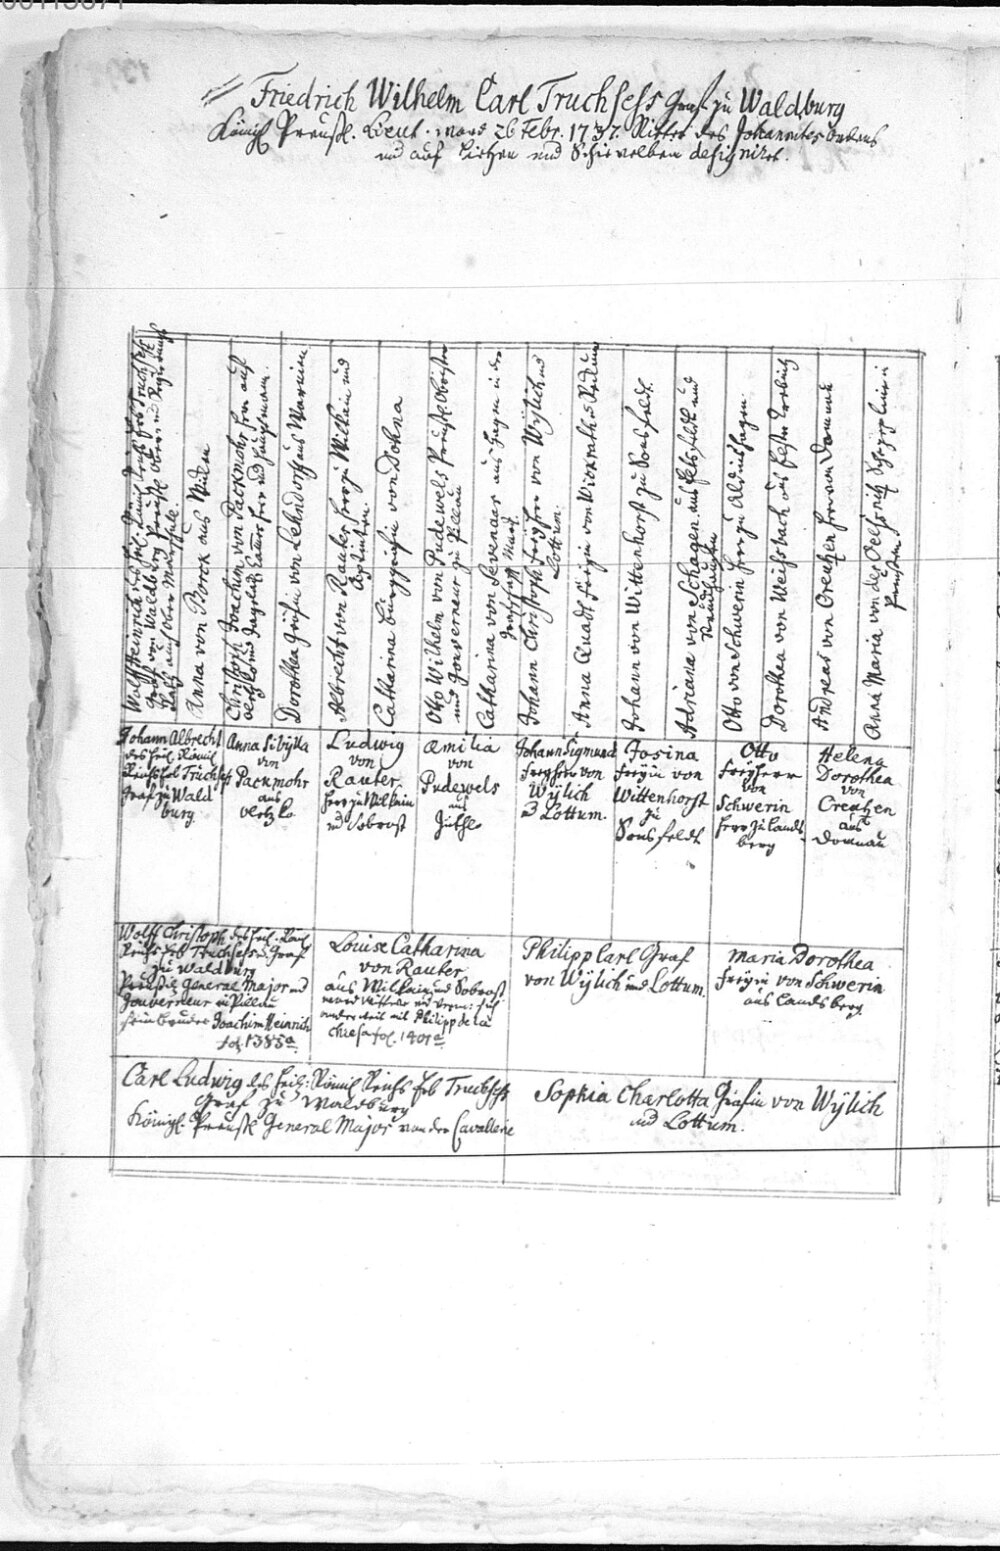 Friedrich Wilhelm Carl Truchsess Graf zu Waldburg
Königl Preußl. Lieut. ward 26 Febr. 1737. Ritter des Johanniter Ordens
und auf Lietzen und Schievelbein designiret.
Wolff Heinrich des
Graf von Waldburg Preußl. Ober
Rath auch ober Marschall.
Anna von Borck aus
Christoph Joachim von Packmohr Herr auf
Oetzko
Dorothea Gräfin von Lehndorff aus
Albrecht von Rauter Herr zu Wilkain und
Catharina Burggräfin von Dohna
Otto Wilhelm von Pudewels Preußl. Obrister
und Gouverneur zu Pillau
Catharina von Sevenaer aus Hagen in der
Grafschafft Marck
Johann Christoph Freyherr von Wylich und
Lottum.
Anna Quadt Freyin von Wickraths
Johann von Wittenhorst zu Sonsfeldt.
Adriana von Schagen aus und
Otto von Schwerin Herr zu Aldwigshagen.
Dorothea von Weissbach aus
Andreas von Creutzen Herr von Domnau
Anna Maria von der Oelsnitz
Preußen.
Johann Albrecht
des heil. Römil
Reichs Erb Truchsess
Graf zu Wald
burg.
Anna Sibylla
von
Packmohr
aus
Oetzko.
Ludwig
von
Rauter
Herr zu Wilkain
und Sobrost
Æmilia
von
Pudewels
aus
Johann Sigmund
Freyherr von
Wylich
u Lottum.
Josina
Freyin von
Wittenhorst
zu
Sonsfeldt
Otto
Freyherr
von
Schwerin
Herr zu Lands
berg
Helena
Dorothea
von
Creutzen
aus
Domnau
Wolff Christoph des heil. Röm.
Reichs Erb Truchsess Graf
zu Waldburg
Preußil General Major und
Gouverneur in Pillau
sein Bruder Joachim Heinrich
fol. 1385a
Louise Catharina
von Rauter
aus Wilkain und Sobrost
ward Wittwe und verm: sich
anderweit mit Philipp de la
Chiesa fol. 1401a
Philipp Carl Graf
von Wylich und Lottum.
Maria Dorothea
Freyin von Schwerin
aus Landsberg
Carl Ludwig des heil: Römil Reichs Erb Truchsess
Graf zu Waldburg
Königl. Preußl General Major von der Cavallerie
Sophia Charlotta Gräfin von Wylich
und Lottum.